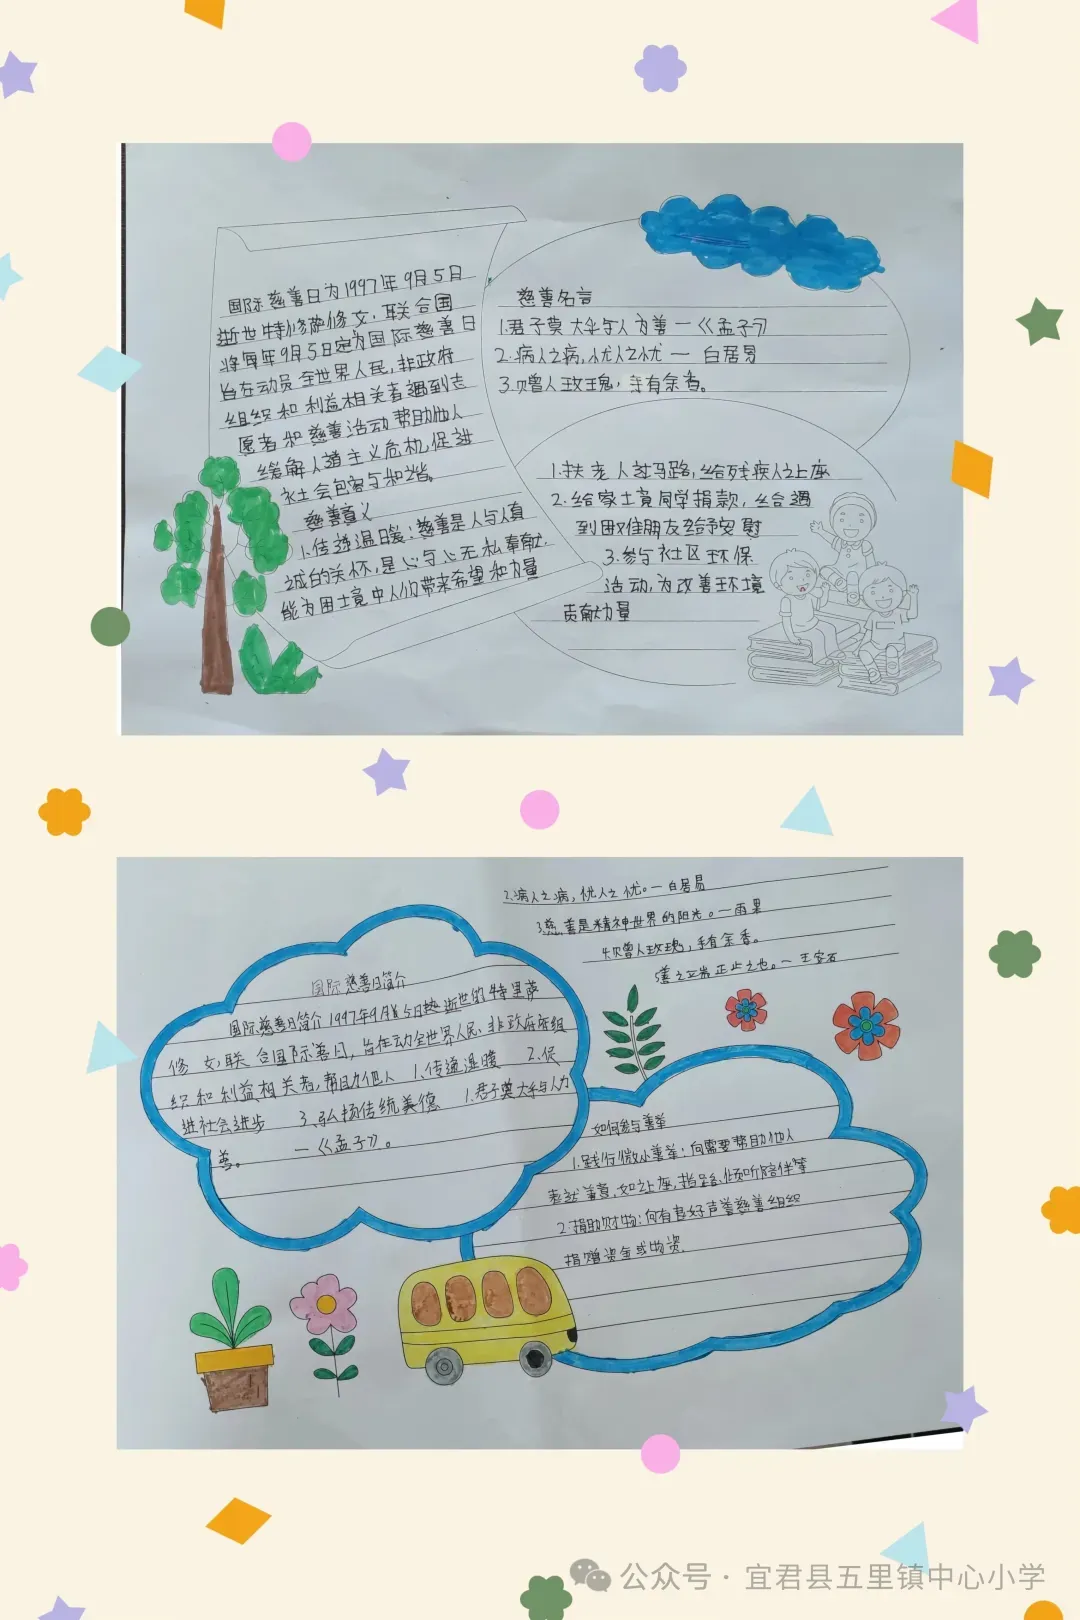 国际慈善日为1997年9月5日
逝世特修萨修女,联合国
将每年9月5日定为国际慈善日
旨在动员全世界人民,非政府
组织和利益相关者通到志
愿者和慈善活动帮助他人
缓解人道主义危机促进
社会包容与和谐。
慈善意义
1.传递温暖:慈善是人与人真
诚的关怀,是心与心无私奉献.
能为困土竟中人们带来希望和力量
慈善名言
1.君子莫大乎与人为善—《孟子》
2.病人之病,忧人之忧 — 白居易
3.赠人玫瑰,手有余香。
1.扶老人过马路,给残疾人让座
2.给家土竟同学捐款,给遇
到困难朋友给予安慰
3.参与社区环保
活动,为改善环境
贡献力量
2.病人之病,忧人之忧。—白居易
3慈善是精神世界的阳光。—雨果
4赠人玫瑰,手有余香。
5善之端正止之也。— 王安石
国际慈善日简介
国际慈善日简介1997年9月5日 逝世的特里萨
修女,联合国国际善日,旨在动全世界人民 非政府组
织和利益相关者,帮助他人 1.传递温暖 2.促
进社会进步 3.弘扬传统美德 1.君子莫大乎与人为
善。 —《孟子》。
如何参与善举
1.践行微小善举:向需要帮助他人
表达善意,如让座,指路,倾听陪伴等
2.捐助财物:向有良好声誉慈善组织
捐赠资金或物资.
公众号·宜君县五里镇中心小学